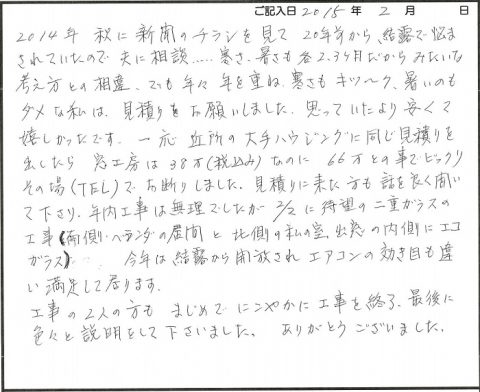 ご記入日 2015年 2月 日
2014年 秋に新聞のチラシを見て 20年前から、結露で悩ま
されていたので 夫に相談..... 寒さ、暑さも各2.3ヶ月だからみたいな
考え方との相違、でも年々年を重ね、寒さもキツ〜ク、暑いのも
ダメな私は、見積りをお願いしました。思っていたより安くて
嬉しかったです。一応 近所の大手ハウジングに同じ見積りを
出したら 窓工房は38万(税込み)なのに 66万との事でビックリ
その場(TEL)でお断りしました。見積りに来た方も話を良く聞い
て下さり、年内工事は無理でしたが 2/2に待望の二重ガラスの
工事(南側・ベランダの居間と北側の私の室、出窓の内側にエコ
ガラス) 今年は結露から開放され エアコンの効き目も違
い満足して居ります。
工事の2人の方も まじめで にこやかに工事を終了、最後に
色々と説明をして下さいました。ありがとうございました。